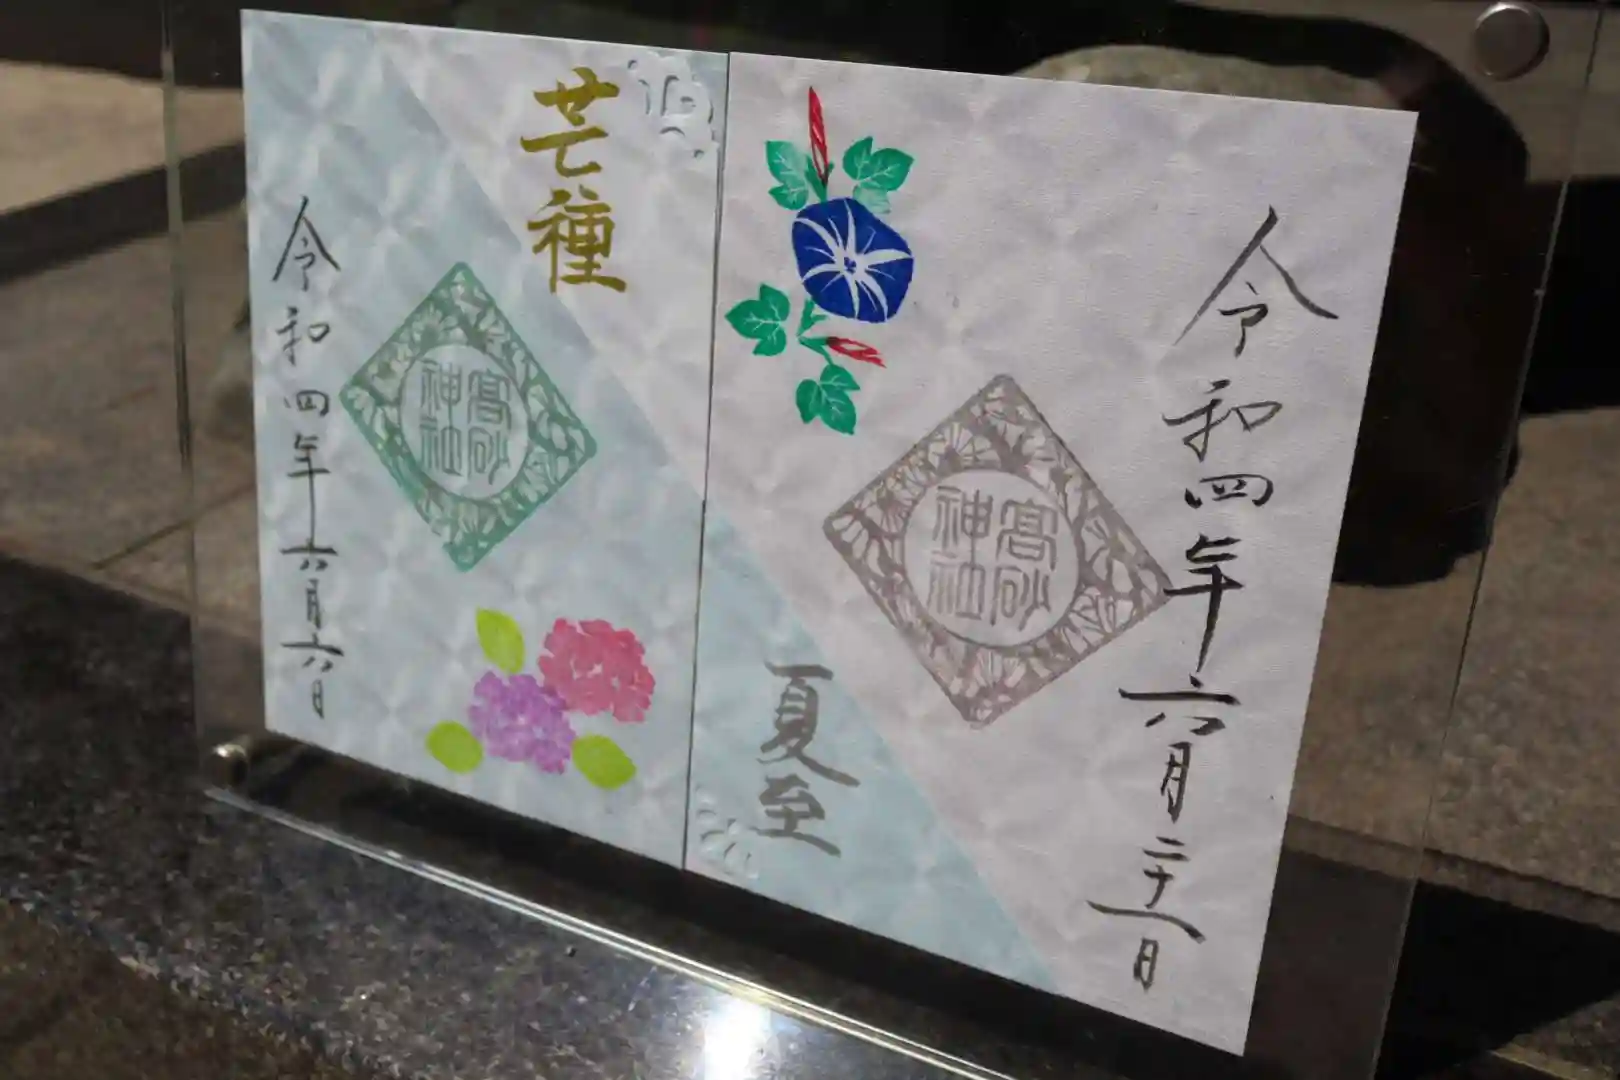 令和四年六月二十一日
高砂
神社
夏至
芒種
高砂
神社
令和四年六月六日